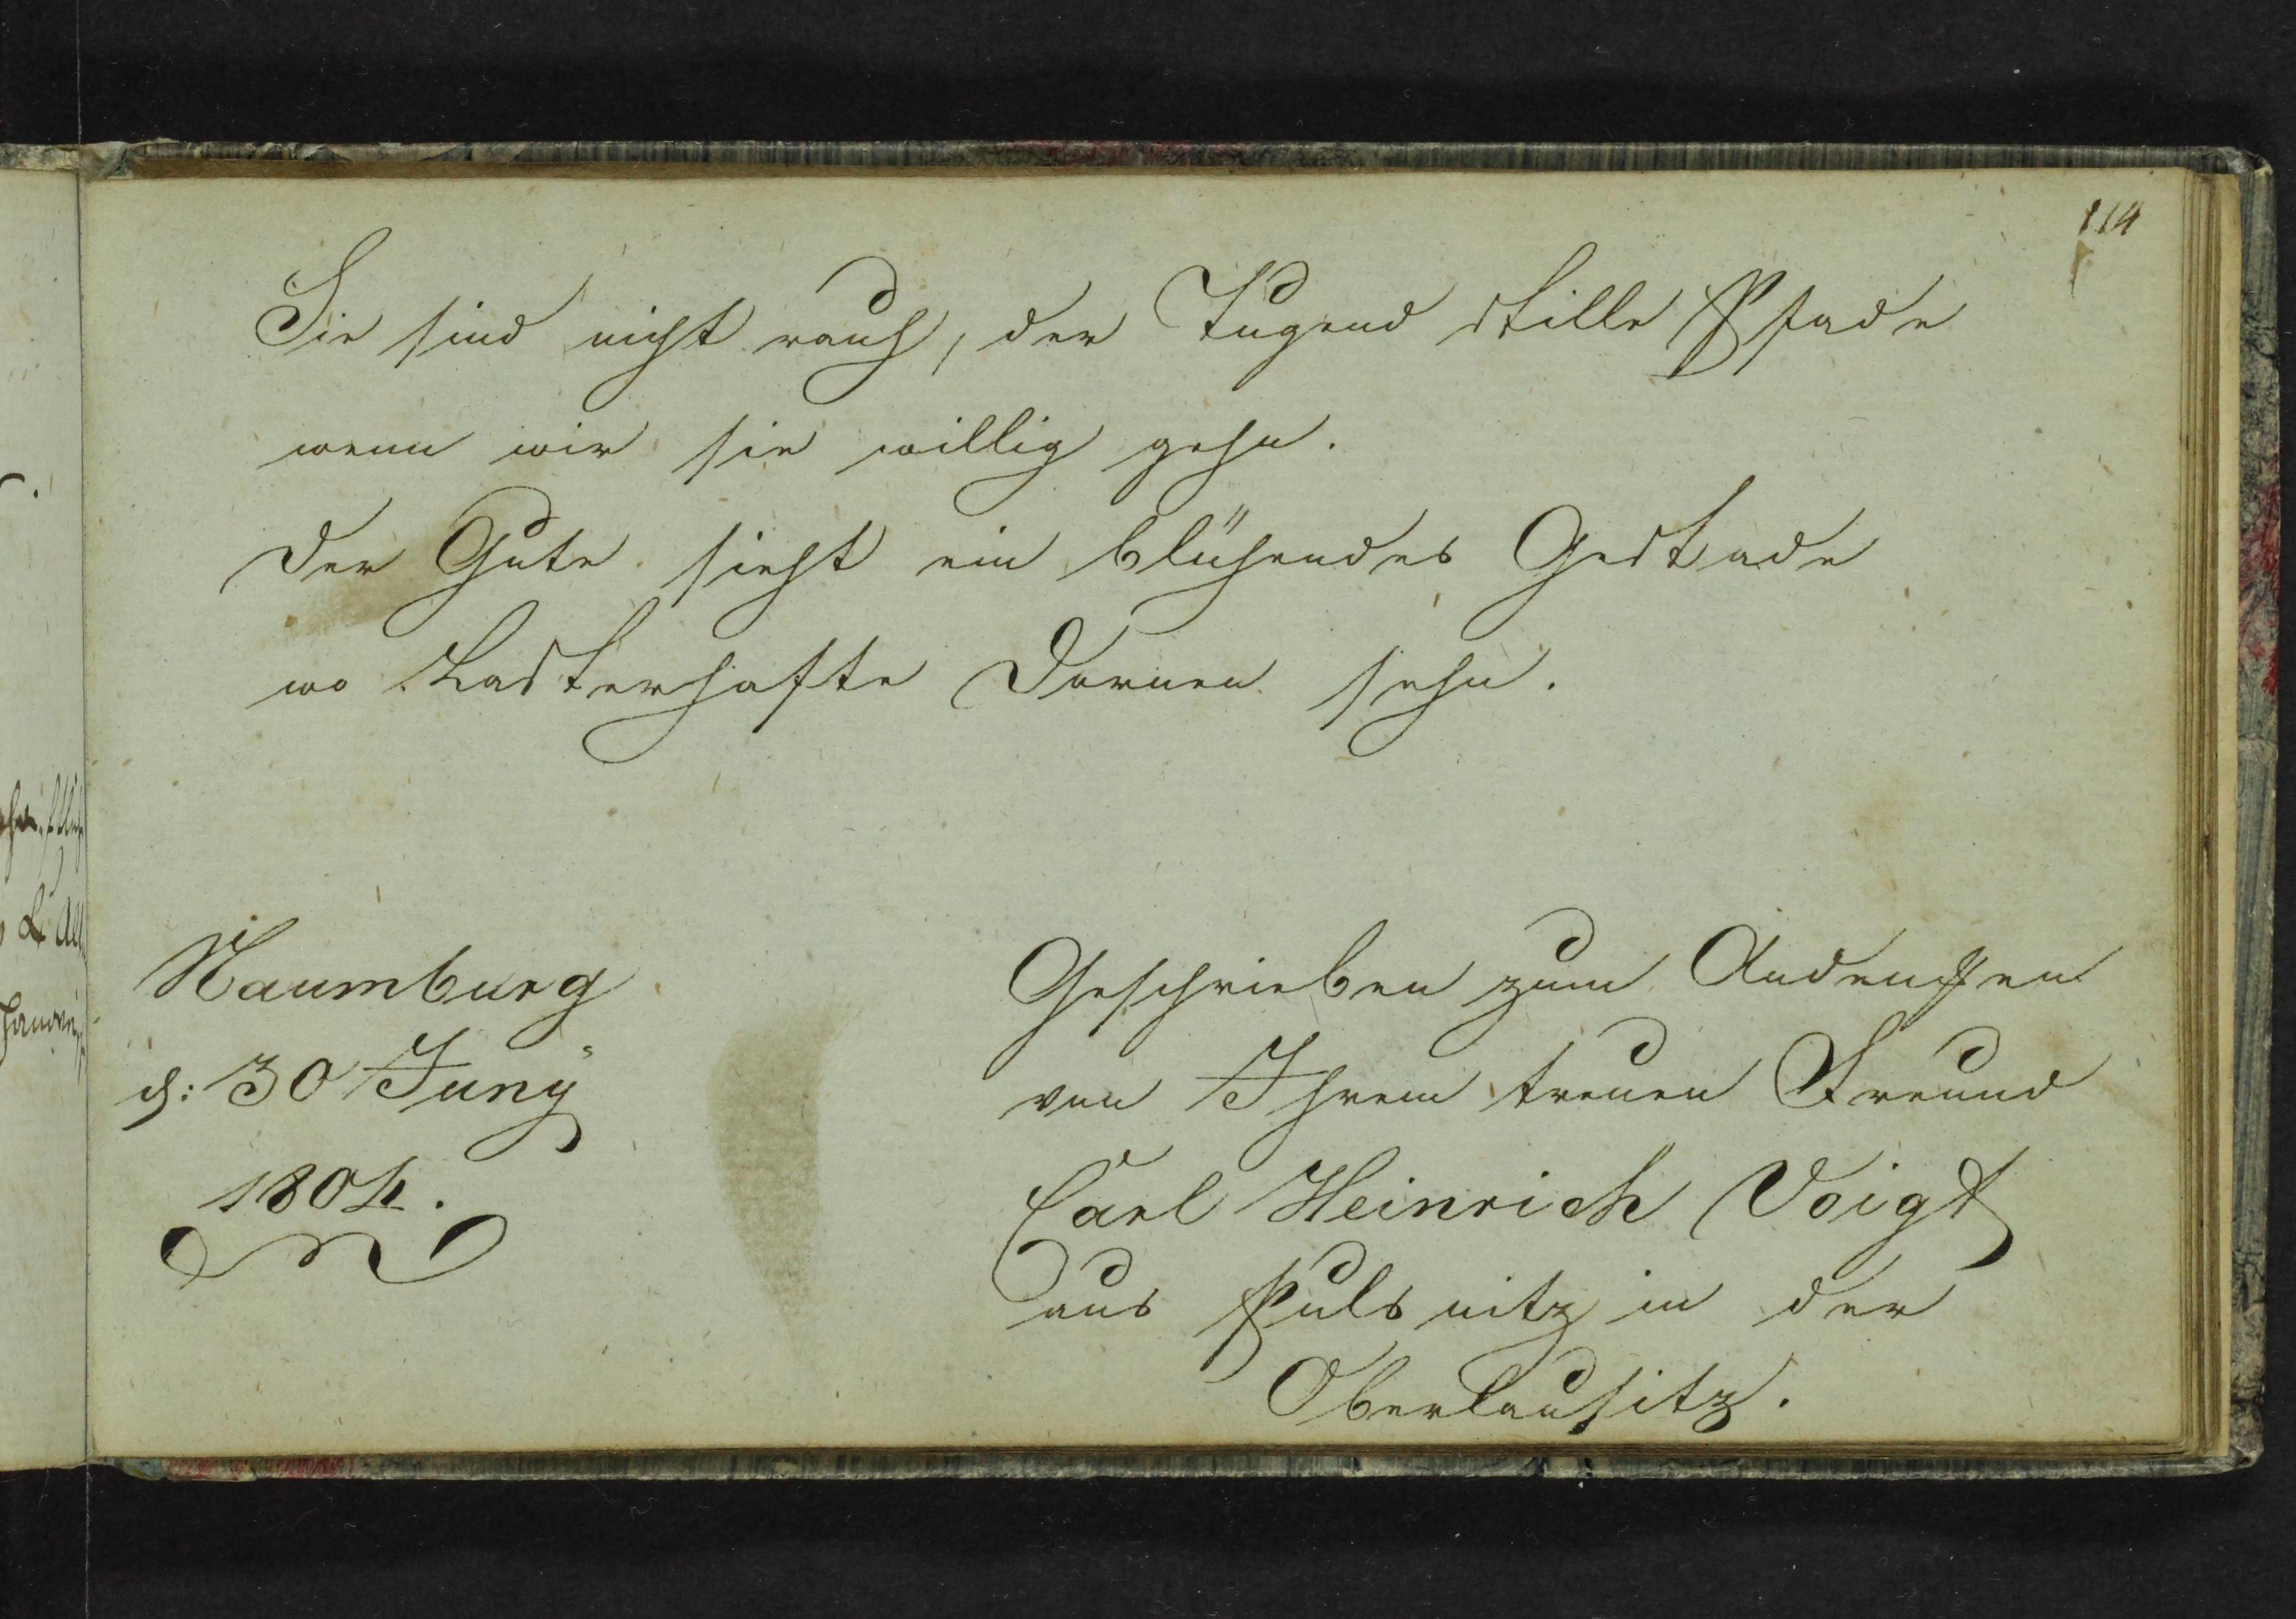 114
Sie sind nicht rauh, der Tugend stille Pfade
wenn wir sie willig gehn.
Der Gute sieht ein blühendes Gestade
wo Lasterhafte Dornen sehn.
Naumburg
d: 30 Juny
1804.
Geschrieben zum Andenken
von Ihrem treuen Freund
Carl Heinrich Voigt
aus Pulsnitz in der
Oberlausitz.